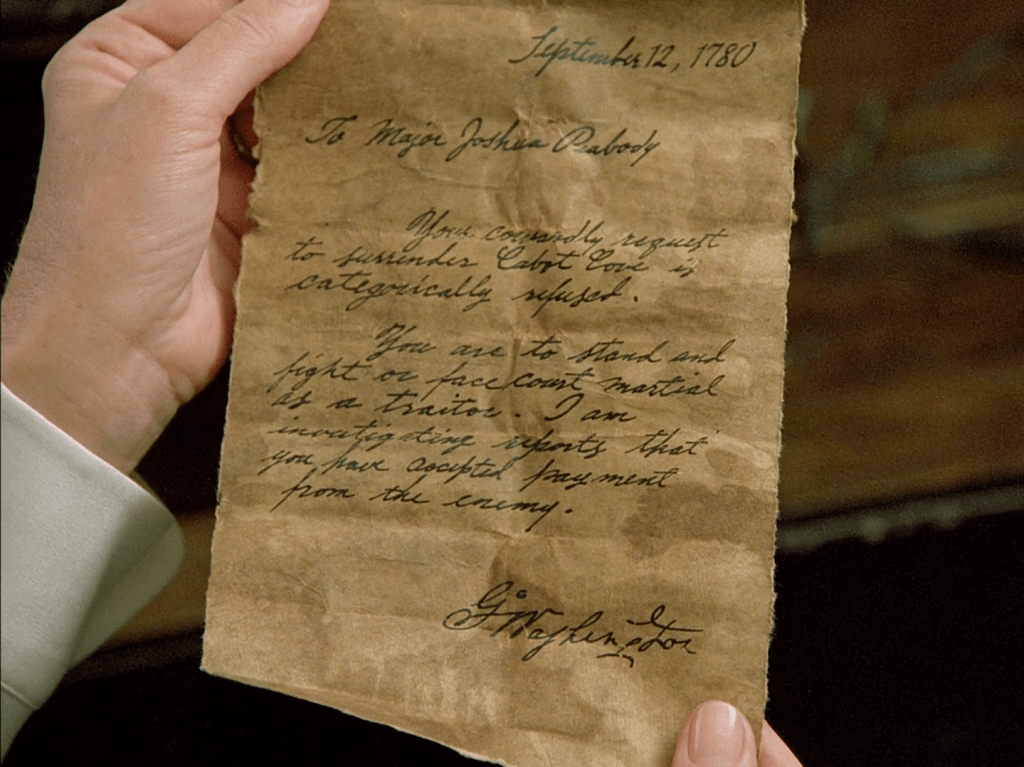 September 12, 1780
To Major Joshua Peabody
Your cowardly request
to surrender Cabot Cove is
categorically refused.
You are to stand and
fight or face court martial
as a traitor. I am
investigating reports that
you have accepted payment
from the enemy.
G Washington